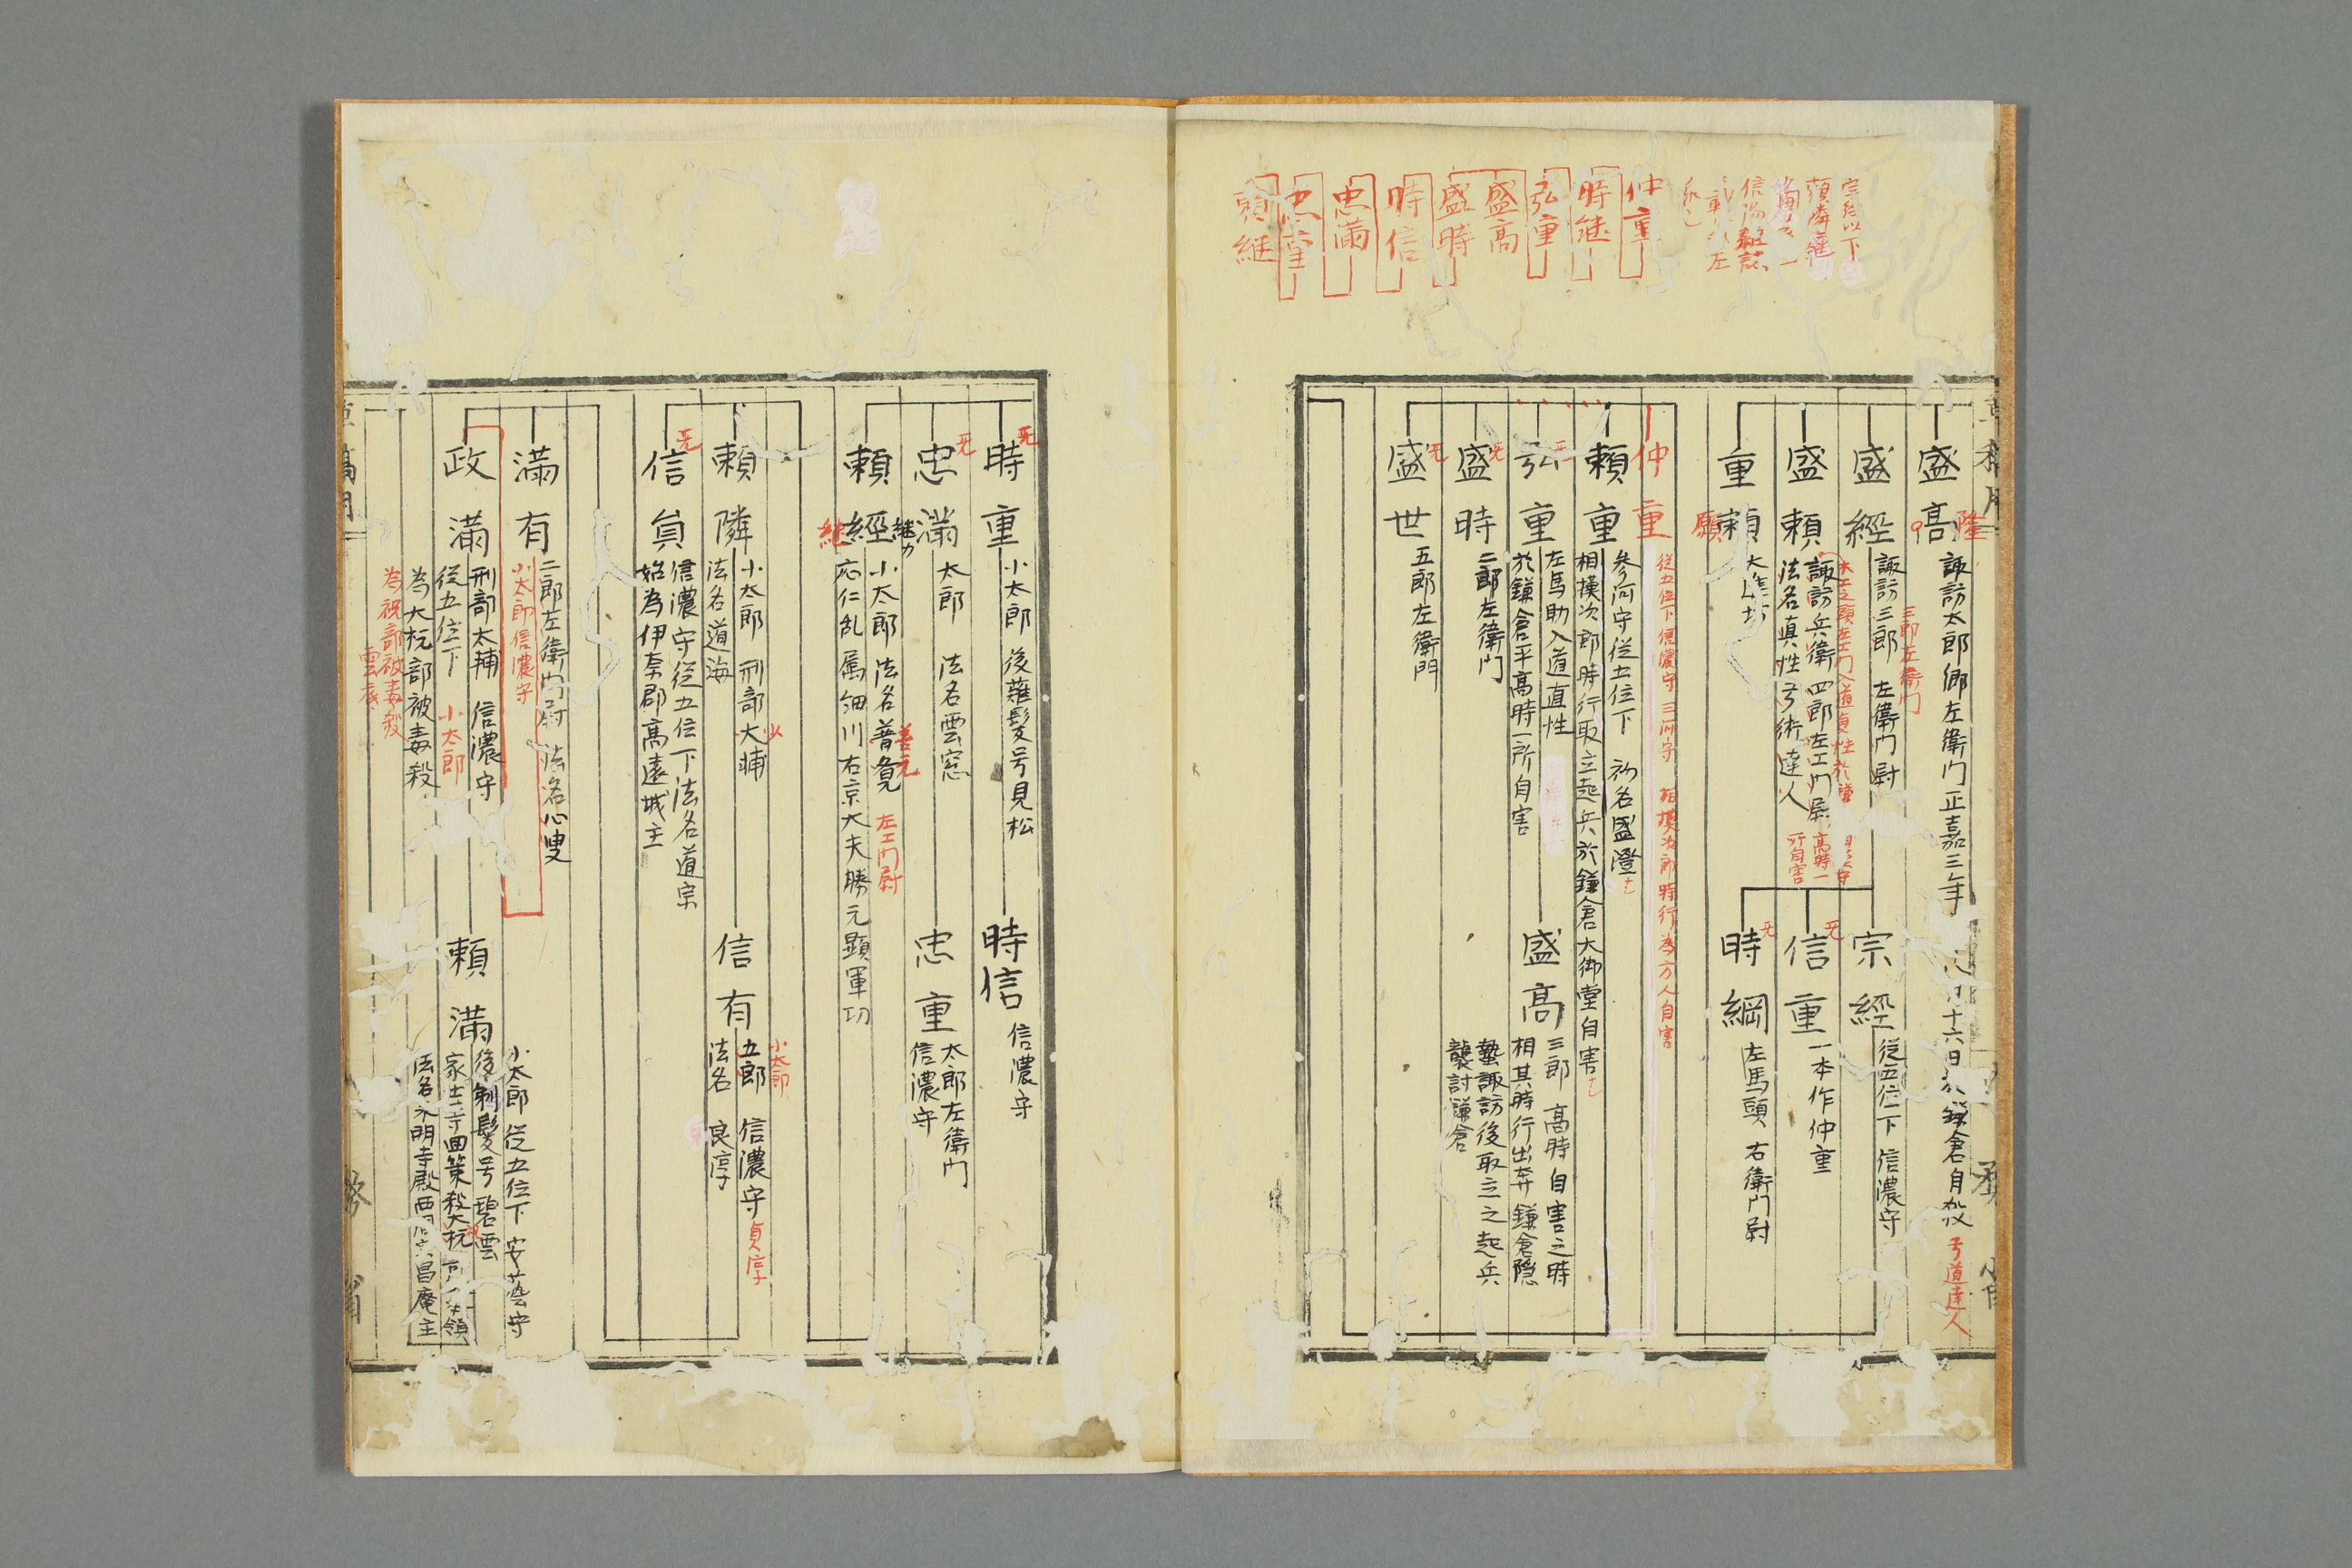 宗経以下
頼隣継
信
左
仲重
時継
弘重
盛高
盛時
時信
忠満
忠重
頼継
盛高
隆
諏訪太郎 郷左衛門 正嘉三年
十六日於鎌倉自殺
弓道達人
盛經
諏訪三郎 左衛門尉
三郎左衛門
盛頼
諏訪兵衛四郎左エ門尉
法名真性弓術達人
高時一
所自害
重頼
願
宗經
従五位下 信濃守
信重
无
一本作仲重
時綱
无
左馬頭 右衛門尉
仲重
従五位下信濃守三河守 相模次郎時行為方人自害
頼重
参河守従五位下 初名盛澄
相摸次郎時行取立起兵於鎌倉大御堂自害
弘重
无
左馬助入道直性
於鎌倉平高時一所自害
盛高
三郎 高時自害之時
相其時行出奔鎌倉隠
蟄諏訪後取立之起兵
襲討鎌倉
盛時
无
二郎左衛門
盛世
无
五郎左衛門
時重
无
小太郎 後薙髪号見松
時信
信濃守
忠満
无
太郎 法名雲窓
忠重
太郎左衛門
信濃守
頼經
継カ
継
小太郎 法名普覓
善元
左エ門尉
応仁乱属細川右京大夫勝元顕軍功
頼隣
小太郎 刑部大輔
少
法名道海
信有
五郎 信濃守
小太郎
貞淳
法名 良淳
信員
无
信濃守従五位下法名道宗
始為伊奈郡高遠城主
満有
二郎左衛門尉 法名心叟
小太郎信濃守
政満
刑部太輔 信濃守
従五位下 小太郎
為大祝部被毒殺
為祝部被毒殺
頼満
小太郎従五位下 安芸守
後剃髪号碧雲
領
法名永明寺殿 昌庵主